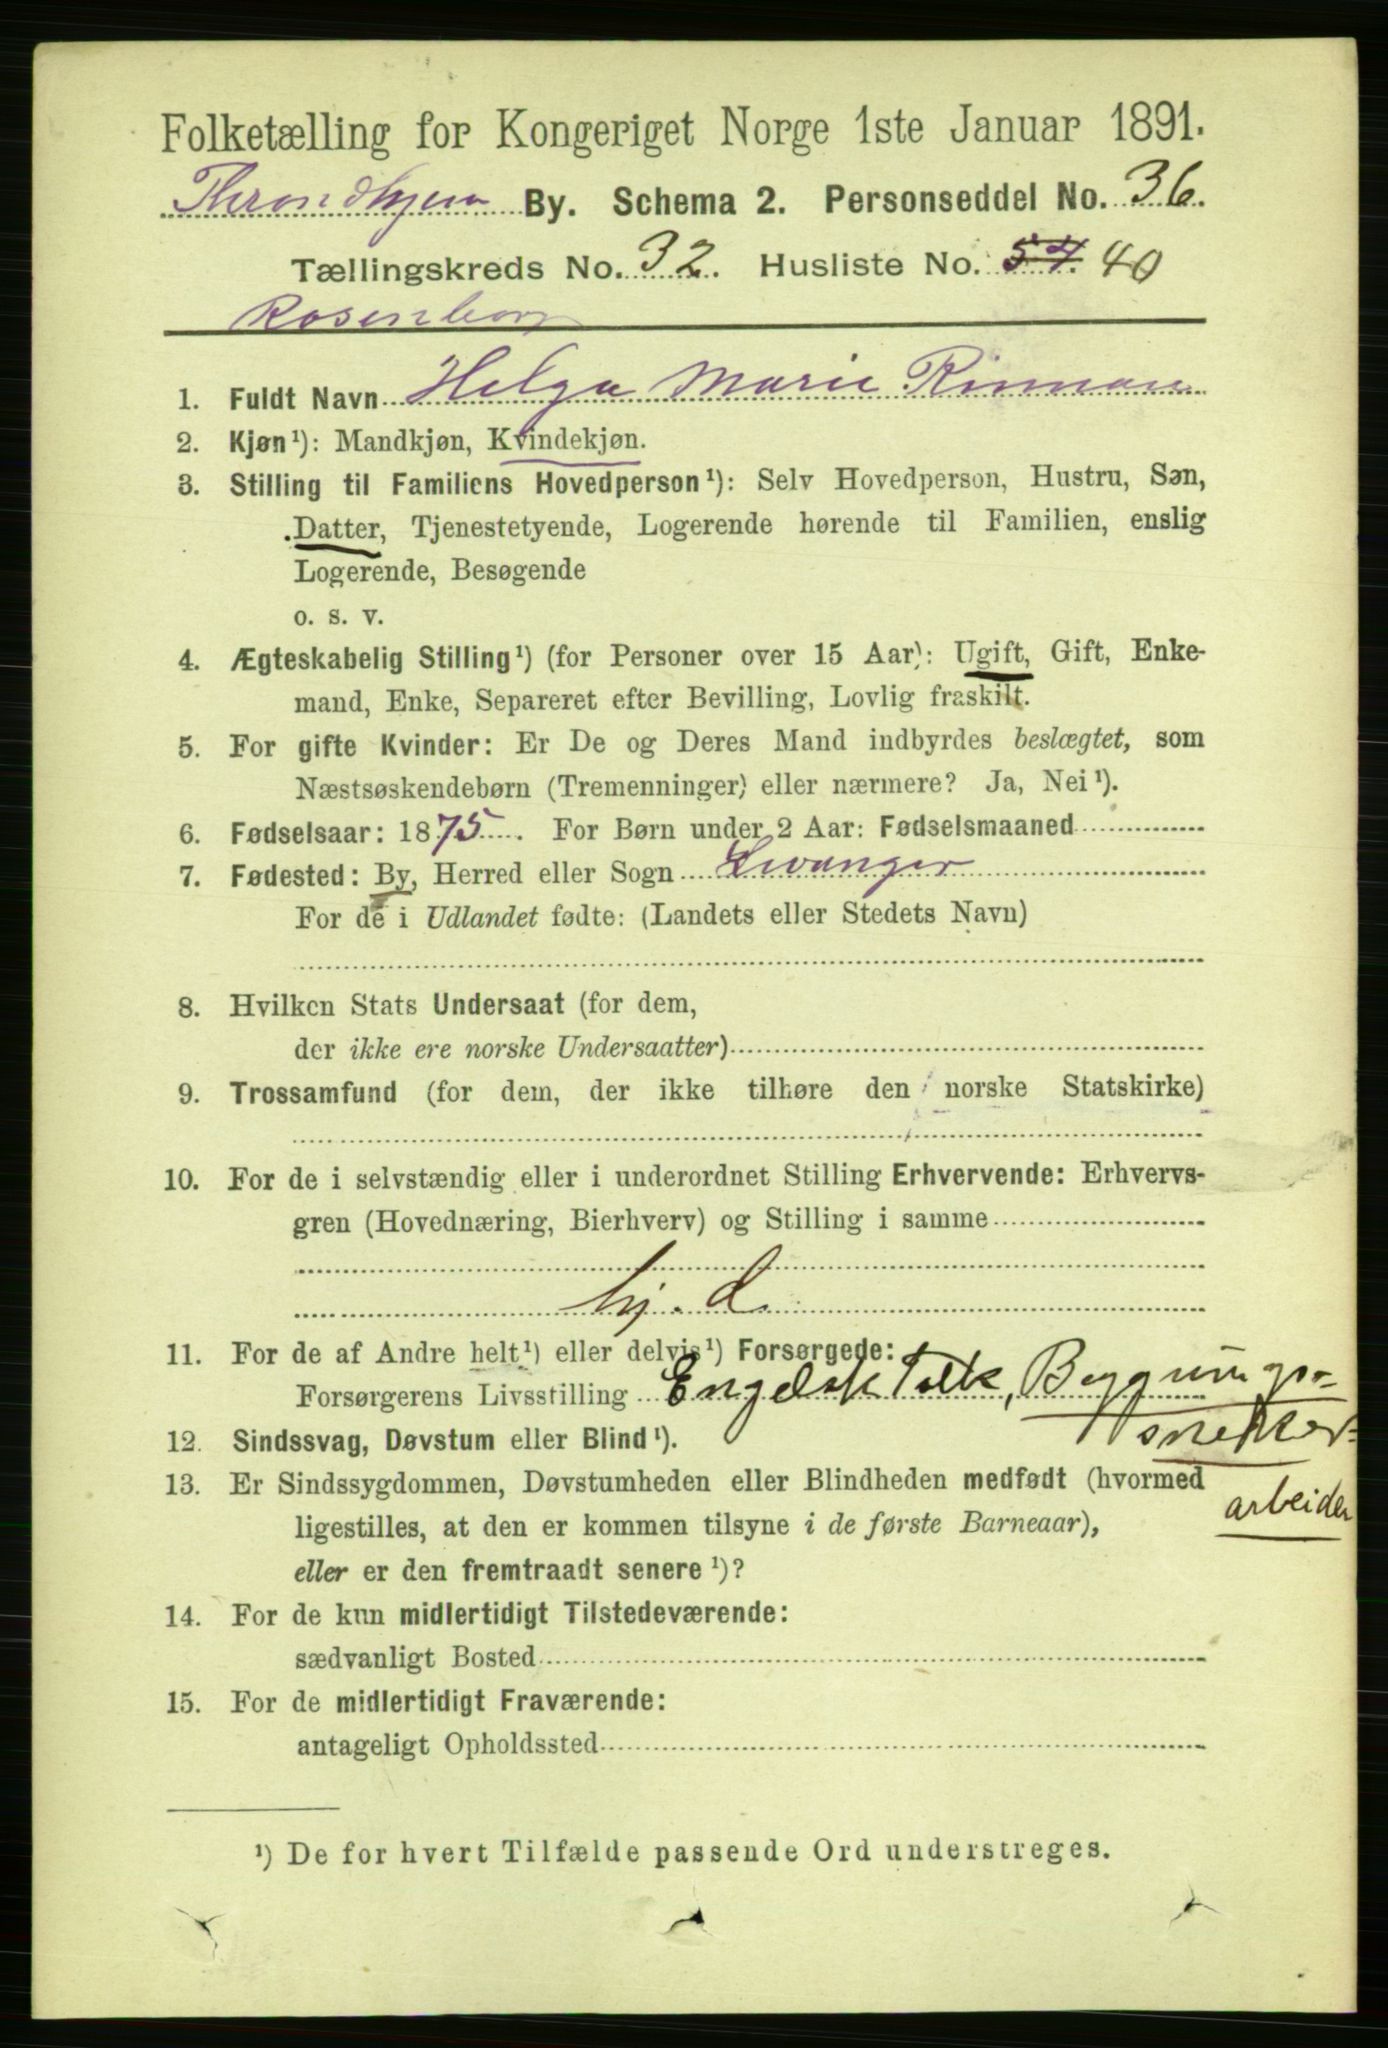 Folketælling for Kongeriget Norge 1ste Januar 1891.
Throndhjem By. Schema 2. Personseddel No. 36.
Tællingskreds No. 32. Husliste No. 54. 40
Rosenborg
1. Fuldt Navn Helga Marie Rinman
2. Kjøn¹): Mandkjøn, Kvindekjøn.
3. Stilling til Familiens Hovedperson¹): Selv Hovedperson, Hustru, Søn,
Datter, Tjenestetyende, Logerende hørende til Familien, enslig
Logerende, Besøgende
o. s. v.
4. Ægteskabelig Stilling¹) (for Personer over 15 Aar): Ugift, Gift, Enke-
mand, Enke, Separeret efter Bevilling, Lovlig fraskilt.
5. For gifte Kvinder: Er De og Deres Mand indbyrdes beslægtet, som
Næstsøskendebørn (Tremenninger) eller nærmere? Ja, Nei¹).
6. Fødselsaar: 1875. For Børn under 2 Aar: Fødselsmaaned
7. Fødested: By, Herred eller Sogn Levanger
For de i Udlandet fødte: (Landets eller Stedets Navn)
8. Hvilken Stats Undersaat (for dem,
der ikke ere norske Undersaatter)
9. Trossamfund (for dem, der ikke tilhøre den norske Statskirke)
10. For de i selvstændig eller i underordnet Stilling Erhvervende: Erhvervs-
gren (Hovednæring, Bierhverv) og Stilling i samme
hj. d.
11. For de af Andre helt¹) eller delvis¹) Forsørgede:
Forsørgerens Livsstilling Engelsk Tolk, Bygnings-
snekker-
arbeider
12. Sindssvag, Døvstum eller Blind¹).
13. Er Sindssygdommen, Døvstumheden eller Blindheden medfødt (hvormed
ligestilles, at den er kommen tilsyne i de første Barneaar),
eller er den fremtraadt senere¹)?
14. For de kun midlertidigt Tilstedeværende:
sædvanligt Bosted
15. For de midlertidigt Fraværende:
antageligt Opholdssted
¹) De for hvert Tilfælde passende Ord understreges.